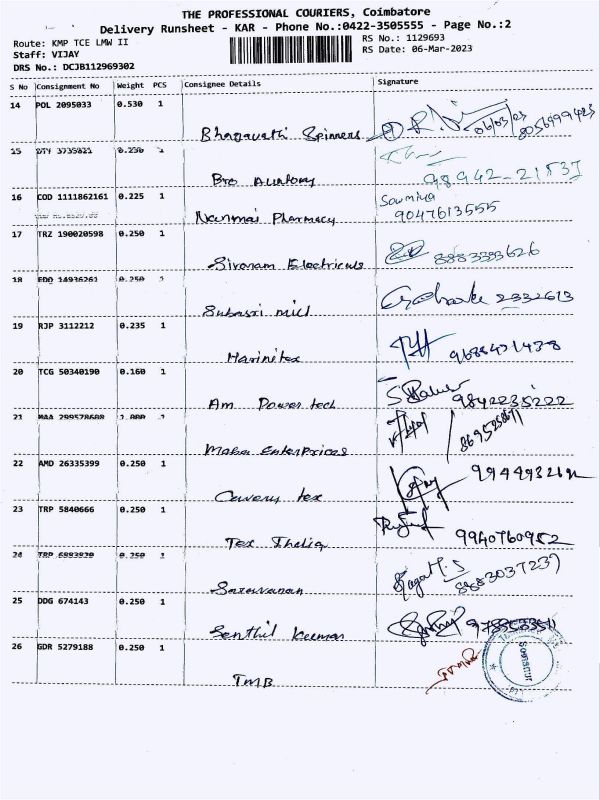 THE PROFESSIONAL COURIERS, Coimbatore
Delivery Runsheet - KAR - Phone No.:0422-3505555 - Page No.:2
Route: KMP TCE LMW II
RS No.: 1129693
Staff: VIJAY
RS Date: 06-Mar-2023
DRS No.: DCJB112969302
S No Consignment No Weight PCS Consignee Details Signature
14 POL 2095033 0.530 1 Bhagavathi Spinners 06/03/23 8056999423
15 0.250 98942-21537
16 COD 1111862161 0.225 1 Nanmai Pharmacy Soumiya 9047613555
17 TRZ 190020598 0.250 1 Sivaram Electricals 8883393626
18 EDO 14936261 0.250 Subasri mill 2332613
19 RJP 3112212 0.235 1 Harinitex
20 TCG 50340190 0.160 1 Am Power tech 9842235222
21 MAA 299578688 Maha Enterprices
22 AMD 26335399 0.250 1 Cavery tex
23 TRP 5840666 0.250 1 Tex India 9940760952
24 TRP 0.250 Saravanan 8883037237
25 DDG 674143 0.250 1 Senthil kumar
26 GDR 5279188 0.250 1 TMB